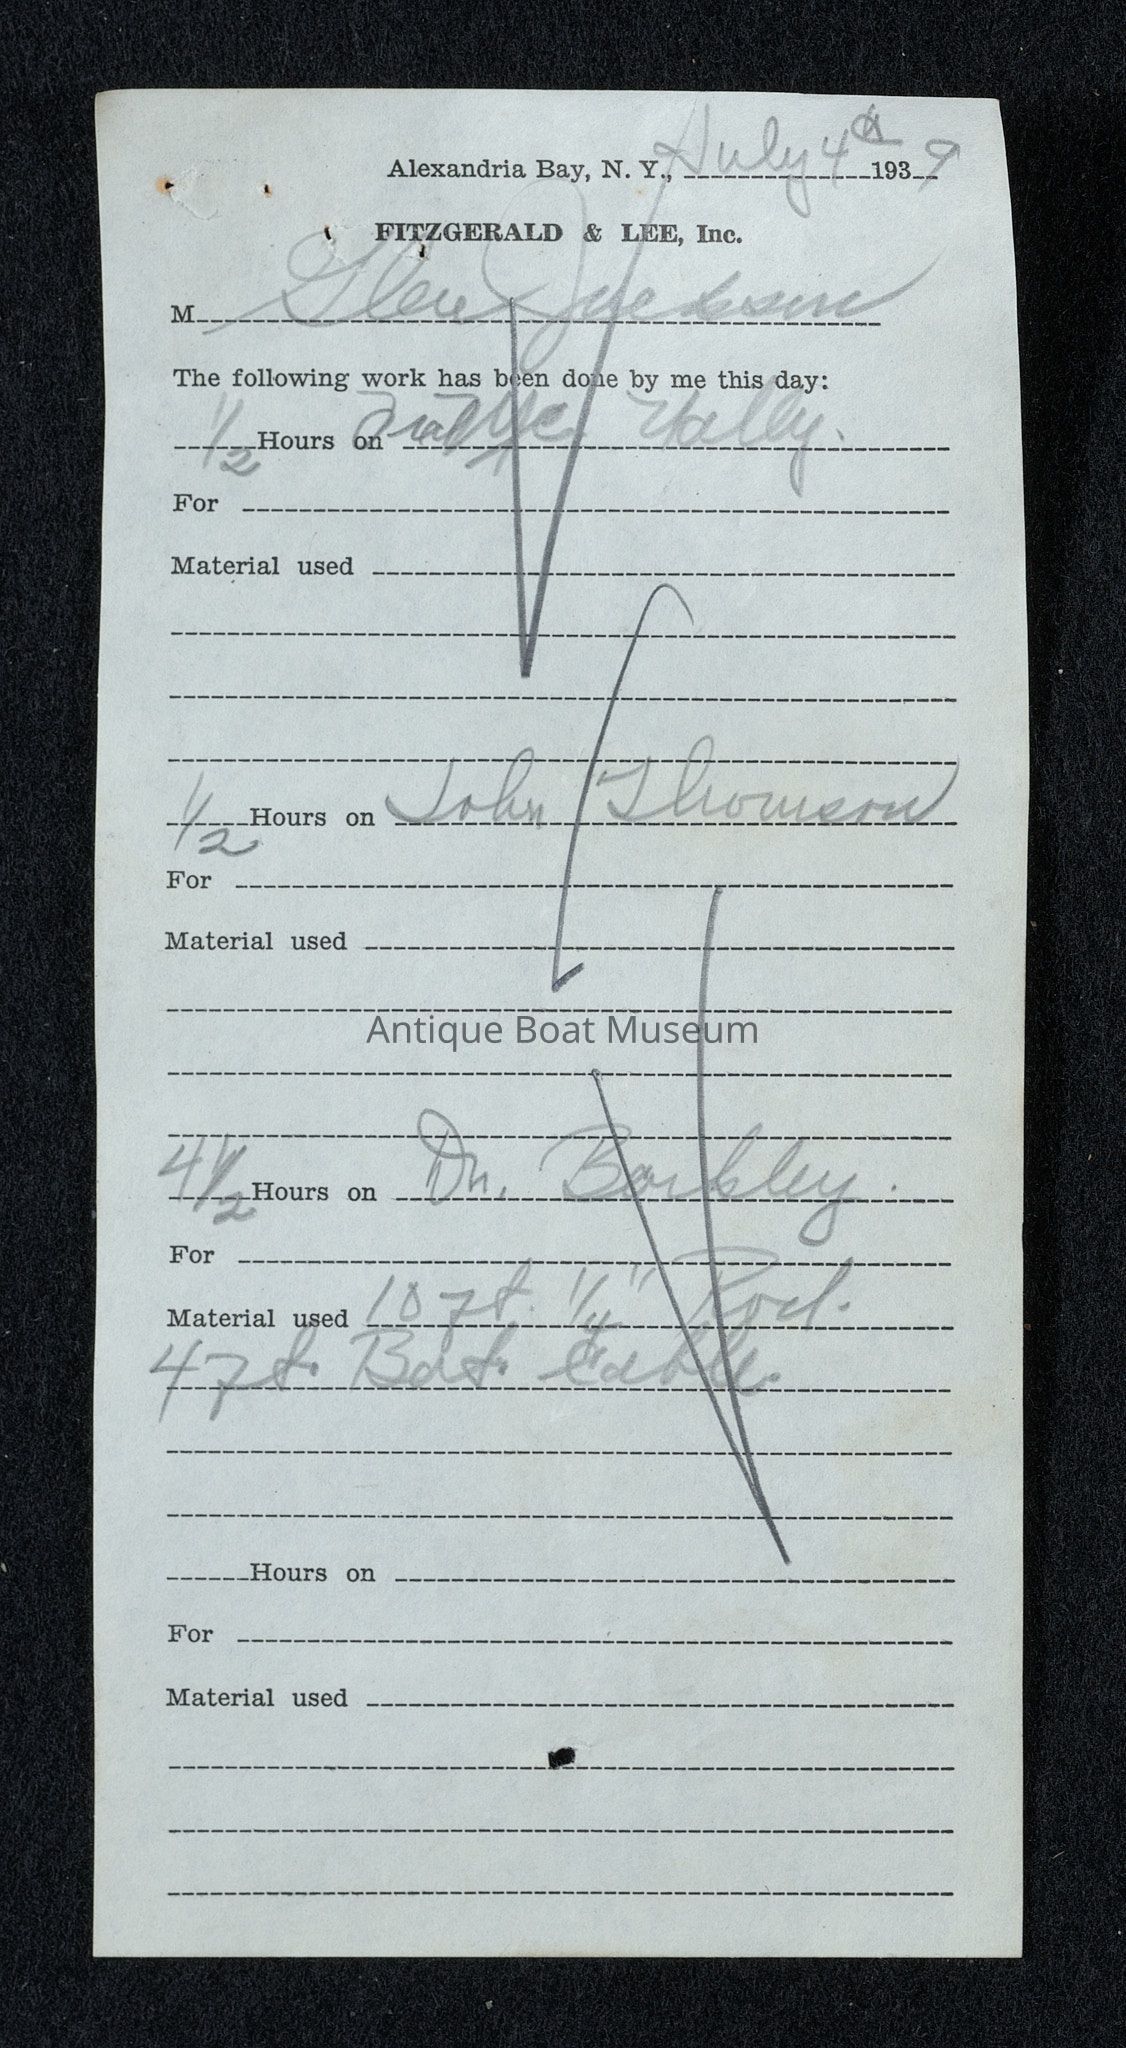 Alexandria Bay, N. Y., July 4th 1939
FITZGERALD & LEE, Inc.
M Glen Jackson
The following work has been done by me this day:
1/2 Hours on Hally.
For
Material used
1/2 Hours on John Thomson
For
Material used
Antique Boat Museum
4 1/2 Hours on Dr. Barkley.
For
Material used 10 ft. 1/4" Rod.
4 ft. Bat. Cable.
Hours on
For
Material used